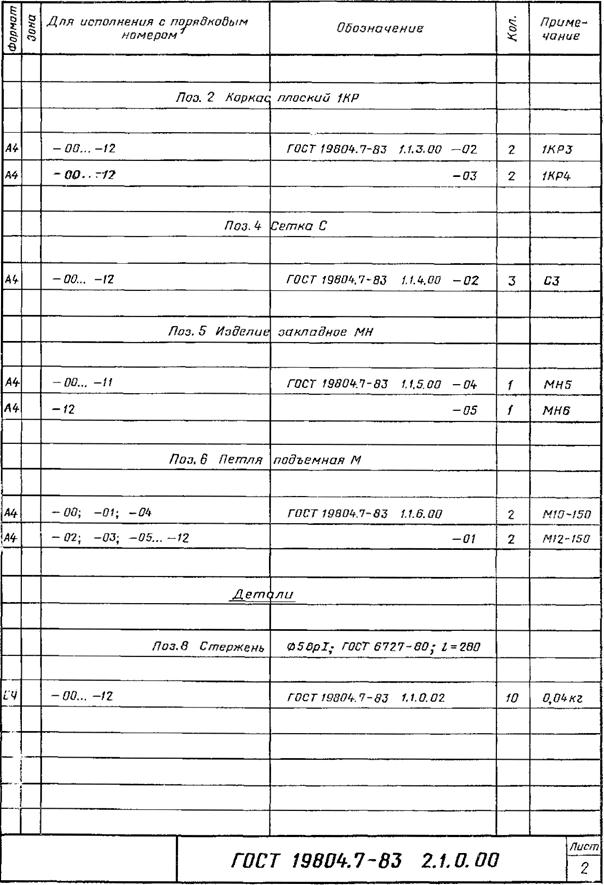 Формат Зона Для исполнения с порядковым номером¹ Обозначение Кол. Примечание
Поз. 2 Каркас плоский 1КР
А4 -00... -12 ГОСТ 19804.7-83 1.1.3.00 -02 2 1КР3
А4 -00... -12 -03 2 1КР4
Поз. 4 Сетка С
А4 -00... -12 ГОСТ 19804.7-83 1.1.4.00 -02 3 С3
Поз. 5 Изделие закладное МН
А4 -00... -11 ГОСТ 19804.7-83 1.1.5.00 -04 1 МН5
А4 -12 -05 1 МН6
Поз. 6 Петля подъемная М
А4 -00; -01; -04 ГОСТ 19804.7-83 1.1.6.00 2 М10-150
А4 -02; -03; -05... -12 -01 2 М12-150
Детали
Поз. 8 Стержень ф5ВрI; ГОСТ 6727-80; l=280
БЧ -00... -12 ГОСТ 19804.7-83 1.1.0.02 10 0,04кг
ГОСТ 19804.7-83 2.1.0.00
Лист
2